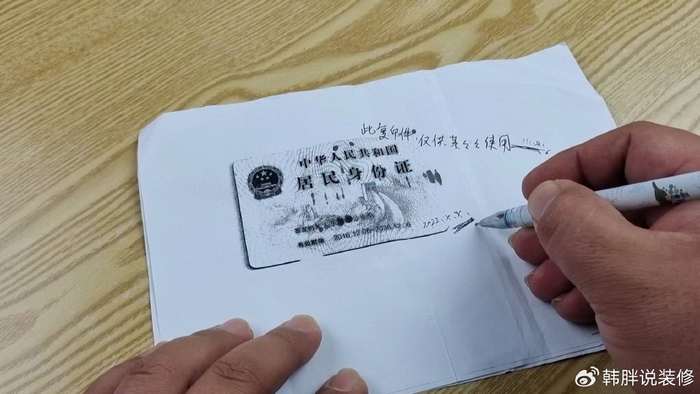 此复印件仅供某公司使用
中华人民共和国
居民身份证
2022.X.X.
有效期限 2016.12.06-2036.12.06
@韩胖说装修